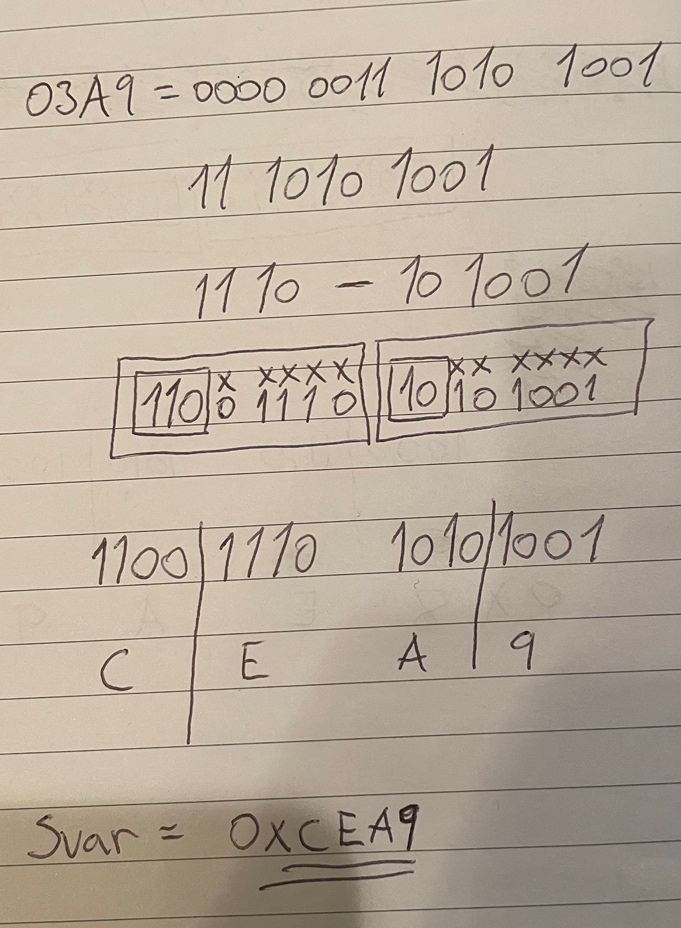 03A9 = 0000 0011 1010 1001
11 1010 1001
1110 - 10 1001
x xxxx xx xxxx
110 0 1110 10 10 1001
1100 1110 1010 1001
C E A 9
Svar = 0XCEA9